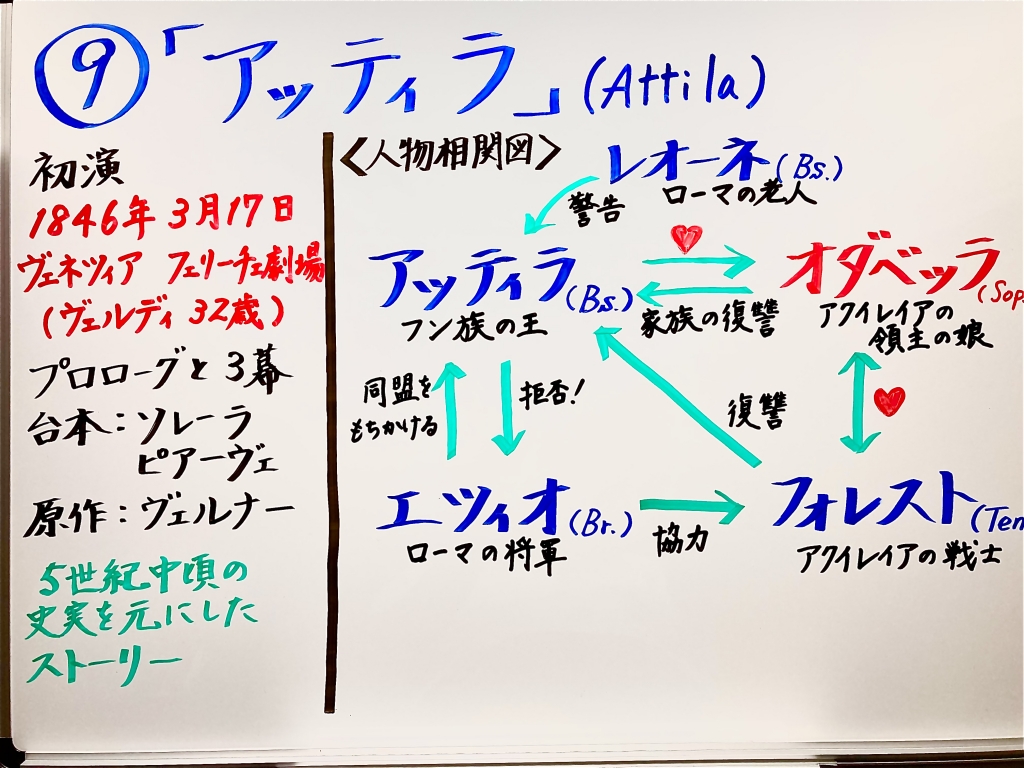 ⑨「アッティラ」(Attila)
初演
1846年 3月17日
ヴェネツィア フェリーチェ劇場
(ヴェルディ 32歳)
プロローグと3幕
台本：ソレーラ
ピアーヴェ
原作：ヴェルナー
5世紀中頃の
史実を元にした
ストーリー
〈人物相関図〉
レオーネ(Bs.)
ローマの老人
警告
アッティラ(Bs.)
フン族の王
家族の復讐
オダベッラ(Sop
アクイレイアの
領主の娘
同盟を
もちかける
拒否!
復讐
エツィオ(Br.)
ローマの将軍
協力
フォレスト(Ten
アクイレイアの戦士